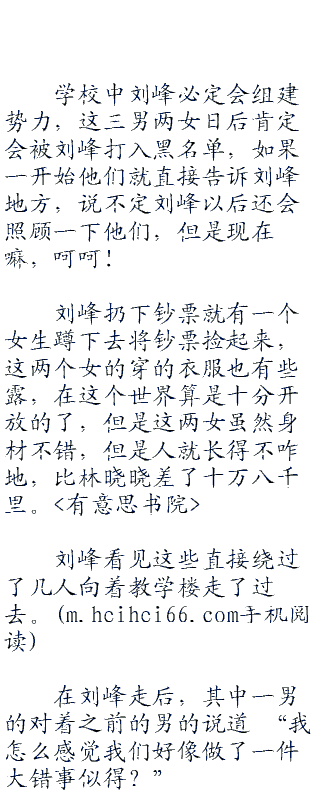 学校中刘峰必定会组建
势力，这三男两女日后肯定
会被刘峰打入黑名单，如果
一开始他们就直接告诉刘峰
地方，说不定刘峰以后还会
照顾一下他们，但是现在
嘛，呵呵！
刘峰扔下钞票就有一个
女生蹲下去将钞票捡起来，
这两个女的穿的衣服也有些
露，在这个世界算是十分开
放的了，但是这两女虽然身
材不错，但是人就长得不咋
地，比林晓晓差了十万八千
里。<有意思书院>
刘峰看见这些直接绕过
了几人向着教学楼走了过
去。(m.hcihci66.com手机阅
读)
在刘峰走后，其中一男
的对着之前的男的说道 “我
怎么感觉我们好像做了一件
大错事似得？”